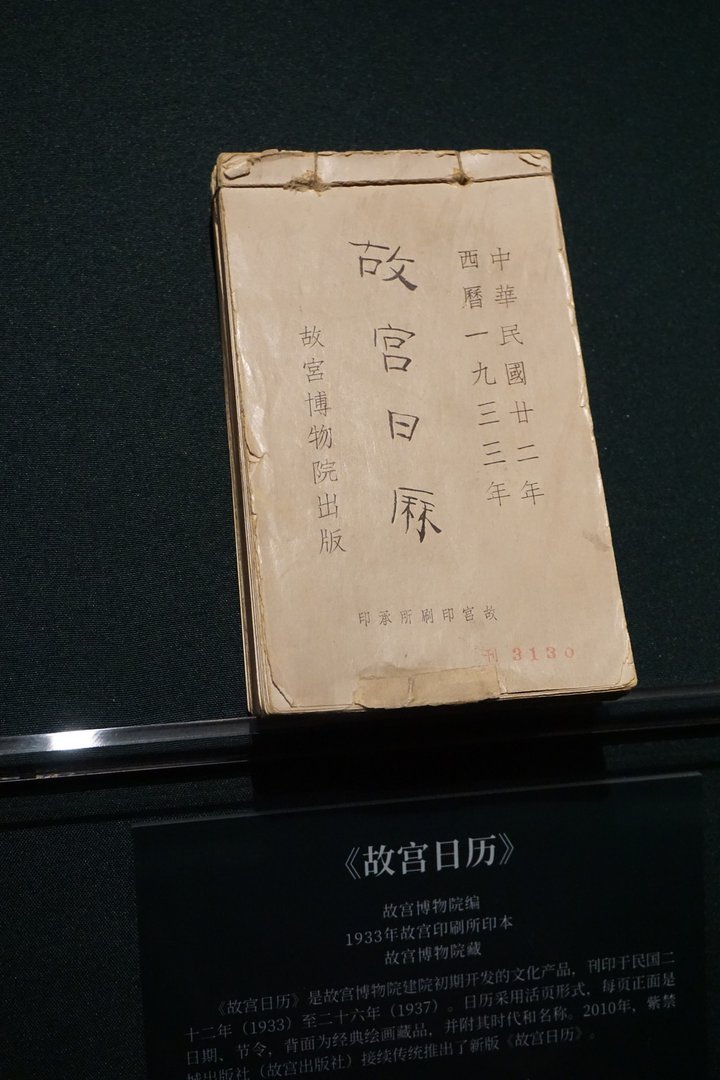 中華民國廿二年
西曆一九三三年
故宮日厤
故宮博物院出版
故宮印刷所承印
刊 3130
《故宫日历》
故宫博物院编
1933年故宫印刷所印本
故宫博物院藏
《故宫日历》是故宫博物院建院初期开发的文化产品，刊印于民国二
十二年（1933）至二十六年（1937）。日历采用活页形式，每页正面是
日期、节令，背面为经典绘画藏品，并附其时代和名称。2010年，紫禁
城出版社（故宫出版社）接续传统推出了新版《故宫日历》。